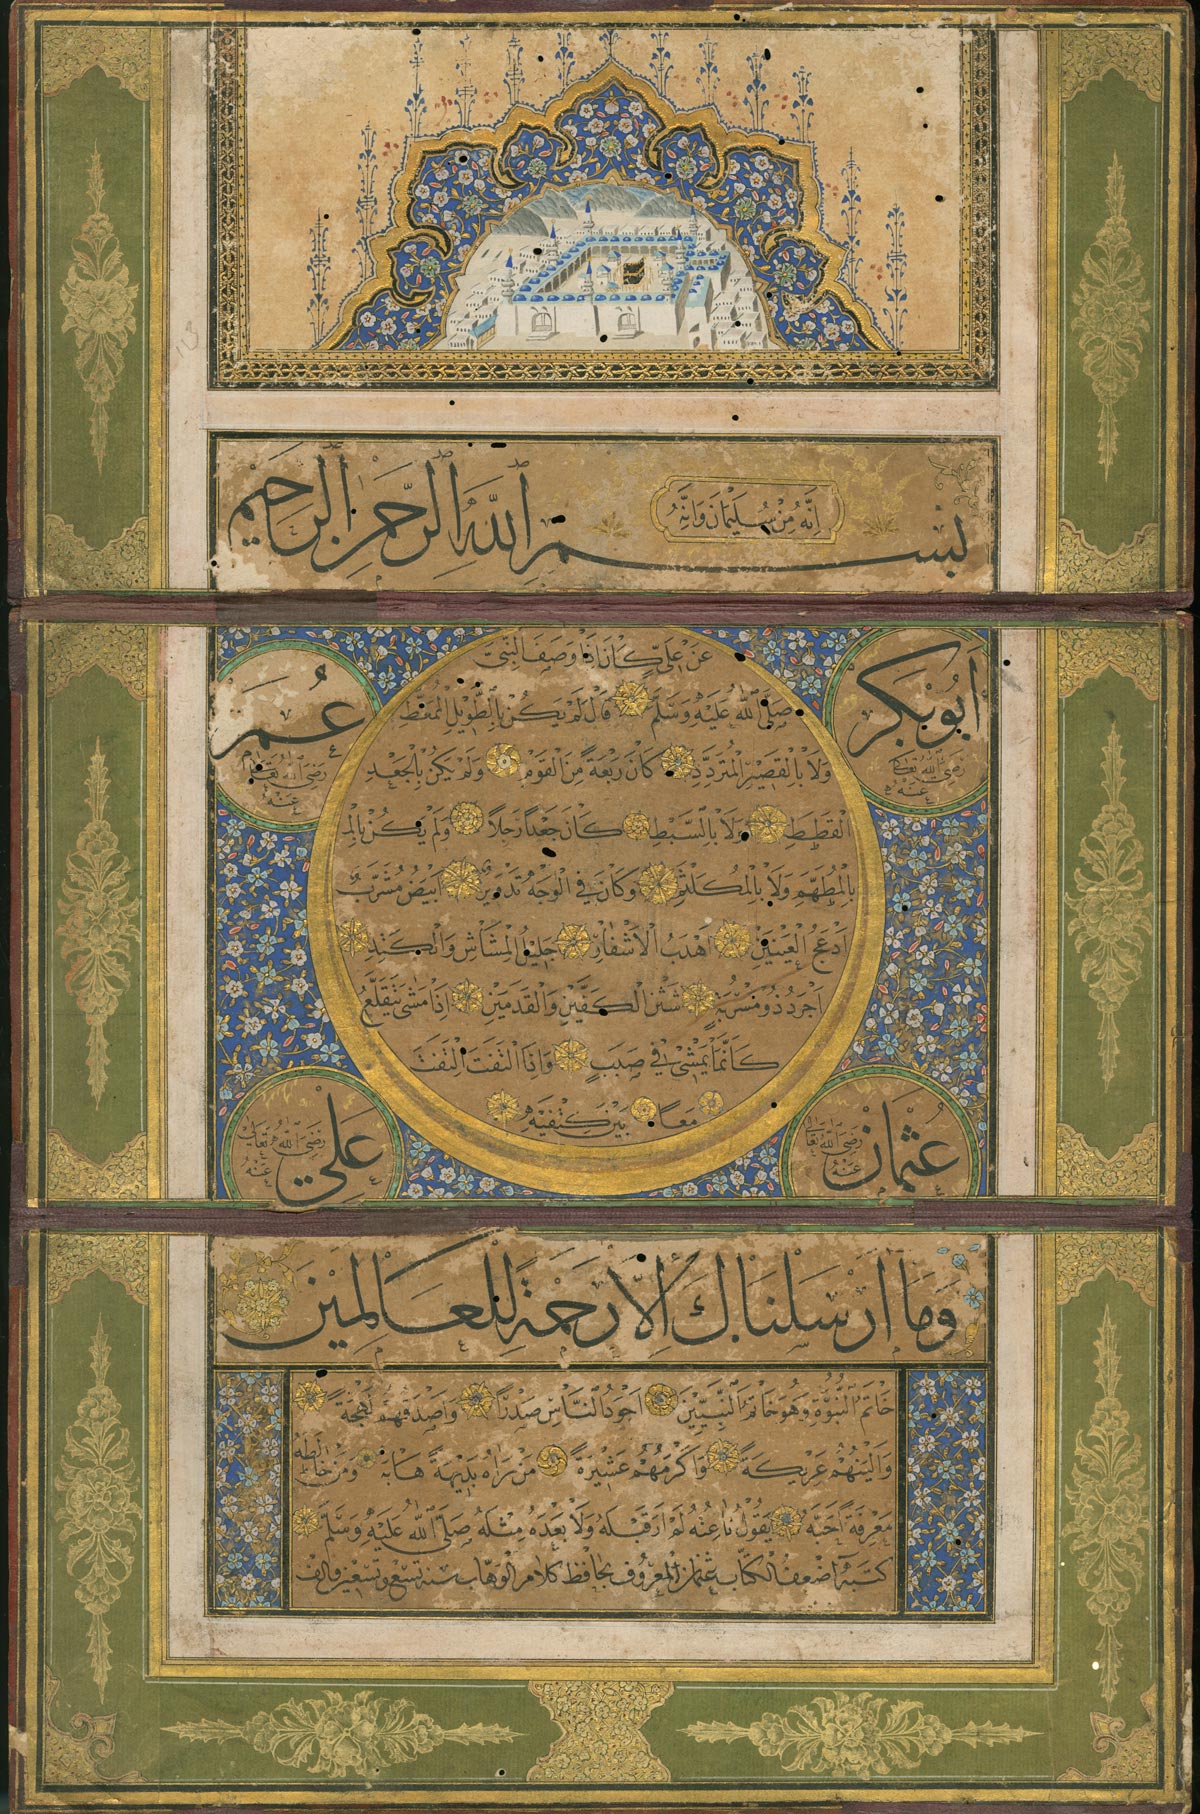 انه من سليمان وانه
بسم الله الرحمن الرحيم
عن علي كان اذا وصف النبي
صلى الله عليه وسلم قال لم يكن بالطويل الممغط
ولا بالقصير المتردد كان ربعة من القوم ولم يكن بالجعد
القطط ولا بالسبط كان جعدا رجلا ولم يكن بالم
بالمطهم ولا بالمكلثم وكان في الوجه تدوير ابيض مشرب
ادعج العينين اهدب الاشفار جليل المشاش والكتد
اجرد ذو مسربة شثن الكفين والقدمين اذا مشى يتقلع
كانما يمشي في صبب واذا التفت التفت
معا بين كتفيه
ابو بكر
رضي الله تعالى
عنه
عمر
رضي الله تعالى
عنه
عثمان
رضي الله تعالى
عنه
علي
رضي الله تعالى
عنه
وما ارسلناك الا رحمة للعالمين
خاتم النبوة وهو خاتم النبيين اجود الناس صدرا واصدقهم لهجة
والينهم عريكة واكرمهم عشيرة من راه بديهة هابه ومن خالطه
معرفة احبه يقول ناعته لم ار قبله ولا بعده مثله صلى الله عليه وسلم
كتبه اضعف الكتاب عثمان المعروف بحافظ كلام الوهاب سنة تسع وتسعين والف